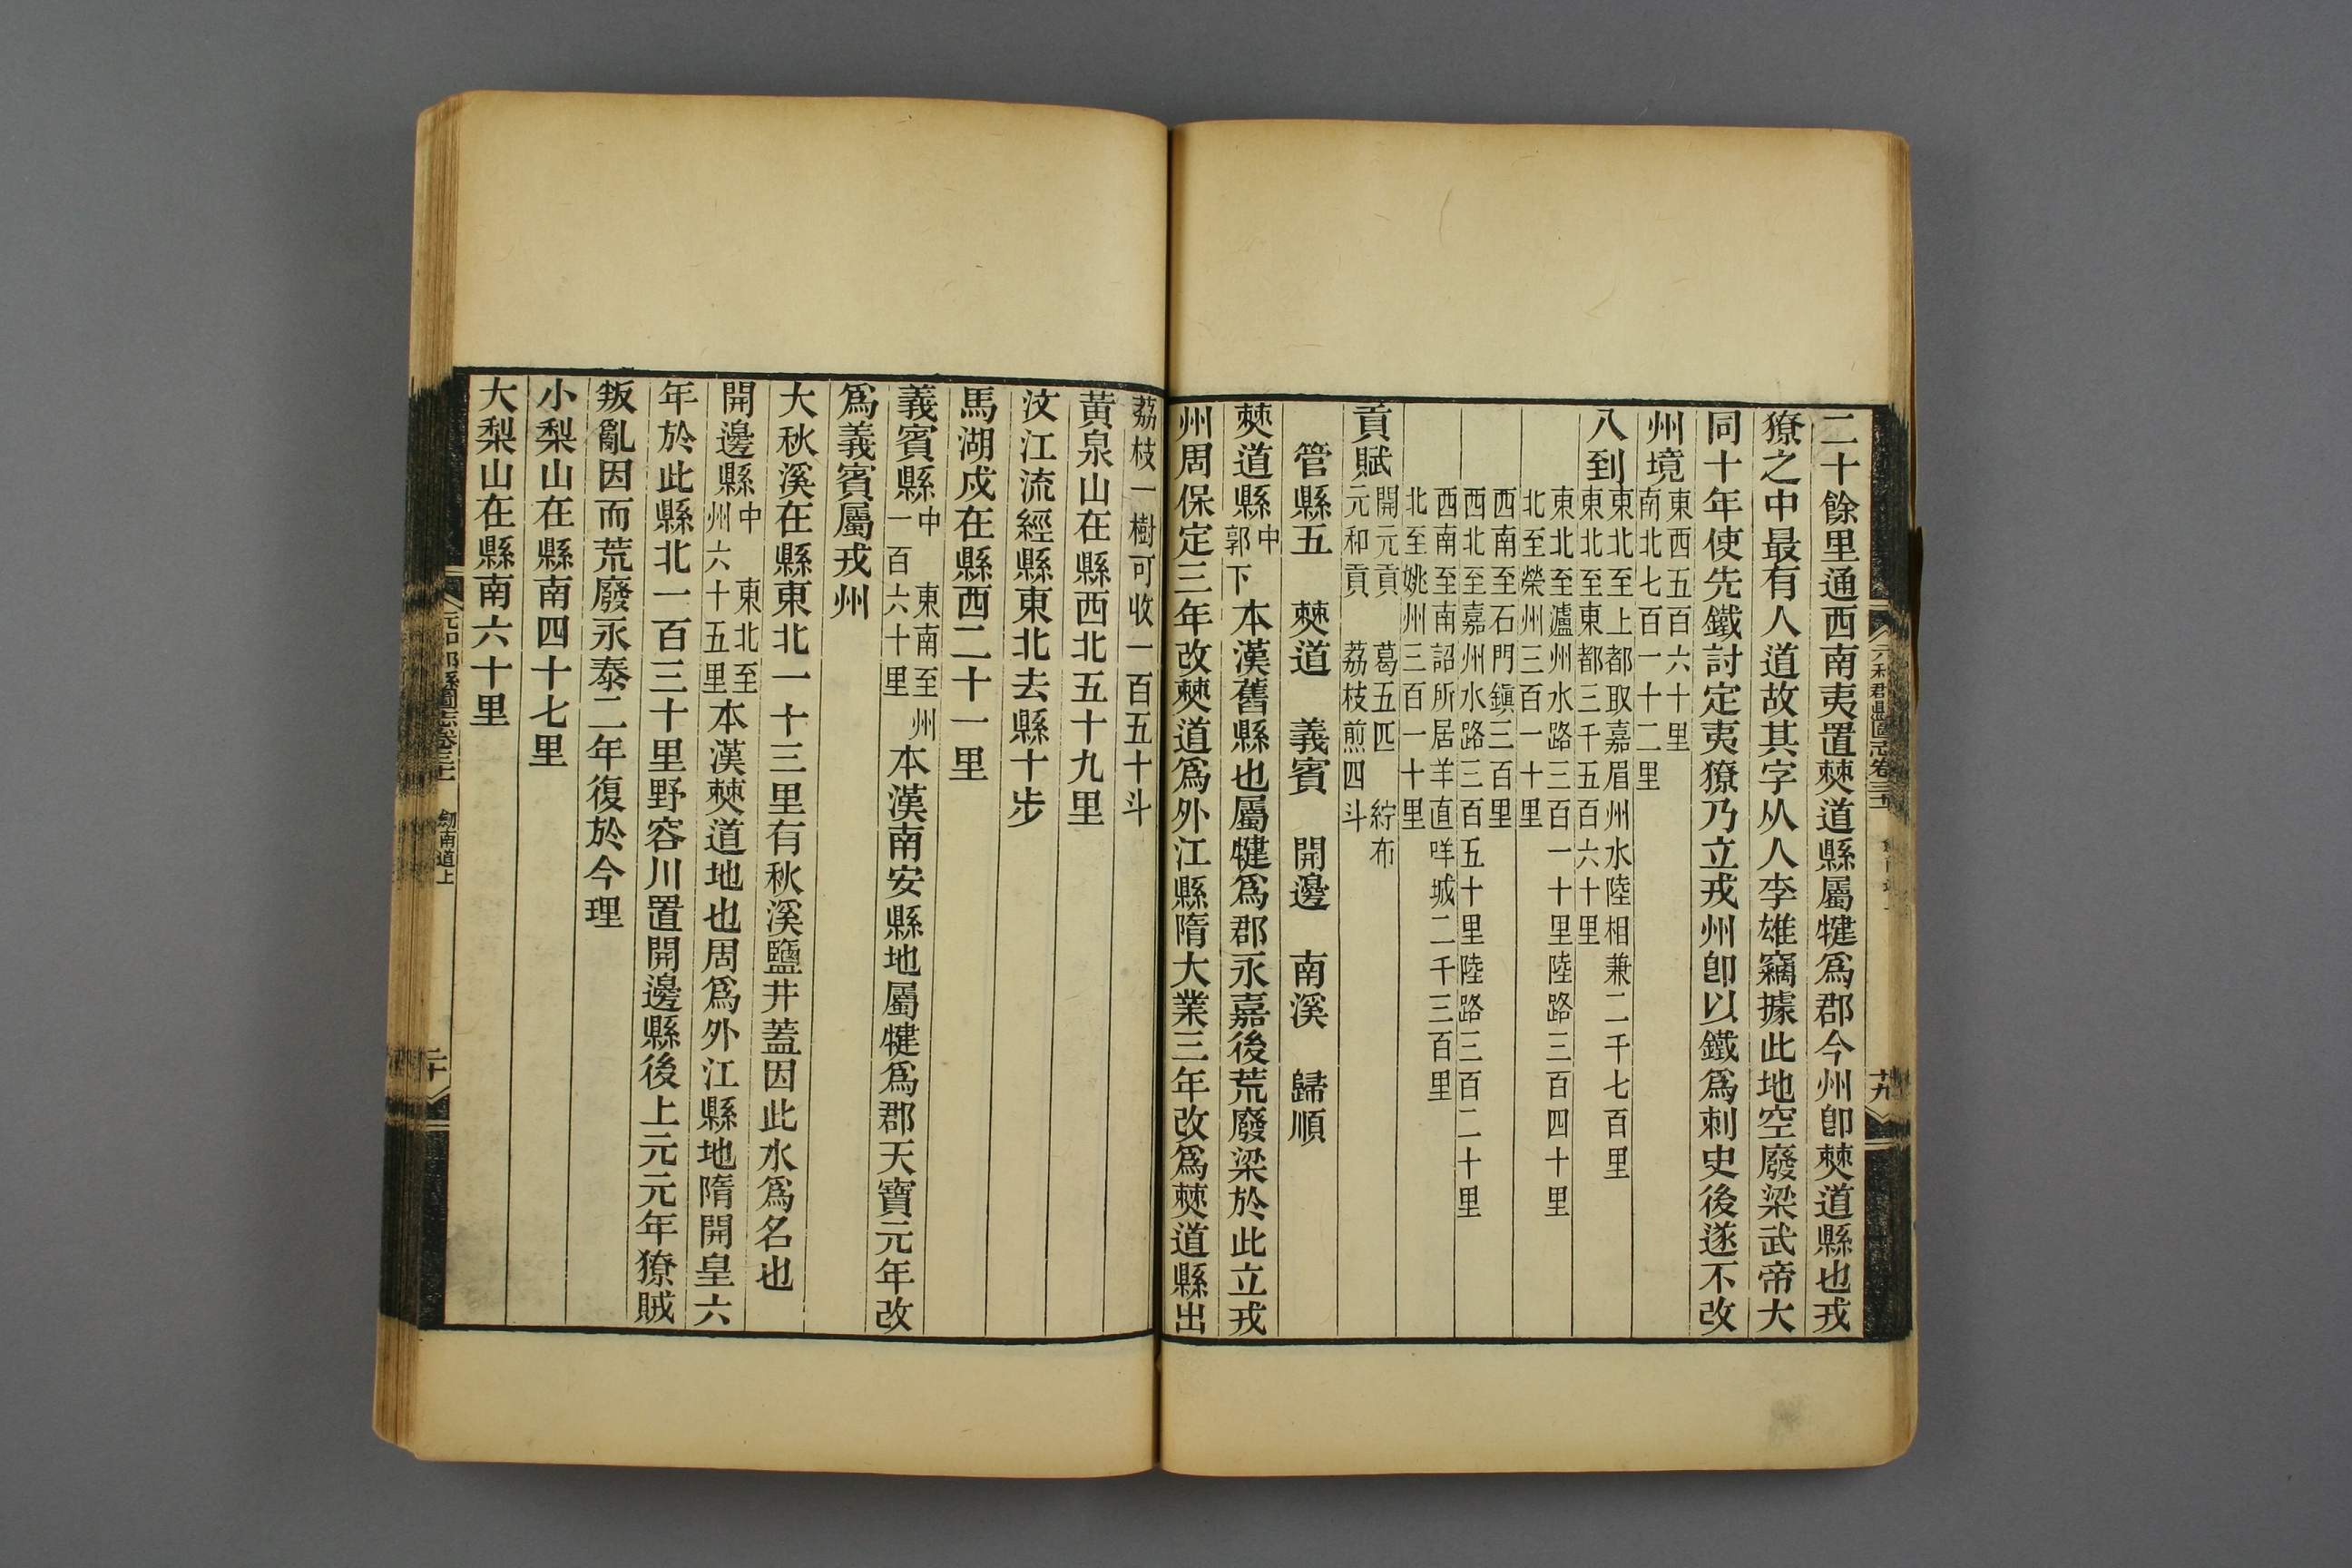 二十餘里通西南夷置僰道縣屬犍爲郡今州卽僰道縣也戎
獠之中最有人道故其字从人李雄竊據此地空廢梁武帝大
同十年使先鐵討定夷獠乃立戎州卽以鐵爲刺史後遂不改
州境東西五百六十里
南北七百一十二里
八到東北至上都取嘉眉州水陸相兼二千七百里
東北至東都三千五百六十里
東北至瀘州水路三百一十里陸路三百四十里
北至榮州三百一十里
西南至石門鎮三百里
西北至嘉州水路三百五十里陸路三百二十里
西南至南詔所居羊直咩城二千三百里
北至姚州三百一十里
貢賦開元貢 葛五匹 紵布
元和貢 荔枝煎四斗
管縣五 僰道 義賓 開邊 南溪 歸順
僰道縣中郭下本漢舊縣也屬犍爲郡永嘉後荒廢梁於此立戎
州周保定三年改僰道爲外江縣隋大業三年改爲僰道縣出
荔枝一樹可收一百五十斗
黃泉山在縣西北五十九里
汶江流經縣東北去縣十步
馬湖戍在縣西二十一里
義賓縣中 東南至州一百六十里本漢南安縣地屬犍爲郡天寶元年改
爲義賓屬戎州
大秋溪在縣東北一十三里有秋溪鹽井蓋因此水爲名也
開邊縣中 東北至州六十五里本漢僰道地也周爲外江縣地隋開皇六
年於此縣北一百三十里野容川置開邊縣後上元元年獠賊
叛亂因而荒廢永泰二年復於今理
小梨山在縣南四十七里
大梨山在縣南六十里
元和郡縣圖志卷三十一 劒南道上
二十